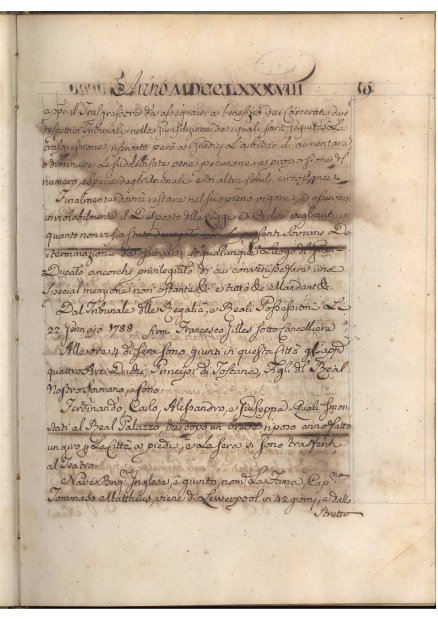 Anno MDCCLXXXXVIII
Trasgressore da assegnarsi a benefizio dei Carcerati dei
rispettivi Tribunali nella Giurisdizione de quali sarà seguita La
trasgressione, riservato però ai Giudici L'arbitrio di aumentare
o diminuire Le suddette pene pecuniarie a proporzione del
numero, e specie degli Animali e di altre simili circostanze.
Finalmente dovrà restare nel suo pieno vigore, ed osservanza
inviolabilmente il Disposto delle Leggi ed Ordini veglianti in
quanto non vi sia stato derogato con presenti Sovrane De-
terminazioni da osservarsi in qualunque Luogo di Gran
Ducato ancorchè privilegiato di cui convenisse fare una
special menzione non ostante &c. e tutto &c. Mandant &c.
Dal Tribunale delle Regalie, e Reali Possessioni Li
22 Gennajo 1788. Firm. Francesco Gilles sotto Cancelliere
Alle ore 4 di sera sono giunti in questa Città gl'
quattro Arci Duchi Principi di Toscana, Figli di Real
Nostro Sovrano, e sono.
Ferdinando, Carlo, Alessandro, e Giuseppe. Quali smon-
tati al Real Palazzo, e dopo un breve riposo anno fatto
un giro La Città a piedi, e a la sera si sono trasferiti
al Teatro
Nave Inglese, è giunto, nom. La Fama, Cap.no
Tommaso Mattheus, viene di Lewerpool in 42 giorni, e dallo
Stretto